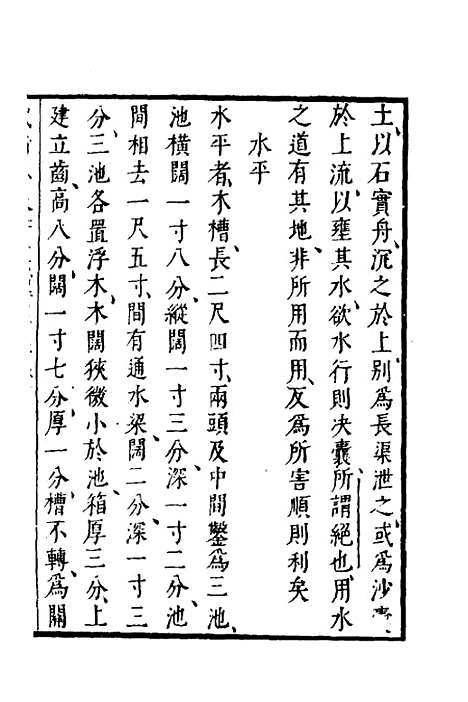 土以石實舟沉之於上別爲長渠泄之或爲沙
於上流以壅其水欲水行則决囊所謂絕也用水
之道有其地非所用而用反爲所害順則利矣
水平
水平者木槽長二尺四寸兩頭及中間鑿爲三池
池橫闊一寸八分縱闊一寸三分深一寸二分池
間相去一尺五寸間有通水梁闊二分深一寸三
分三池各置浮木木闊狹微小於池箱厚三分上
建立齒高八分闊一寸七分厚一分槽不轉爲關